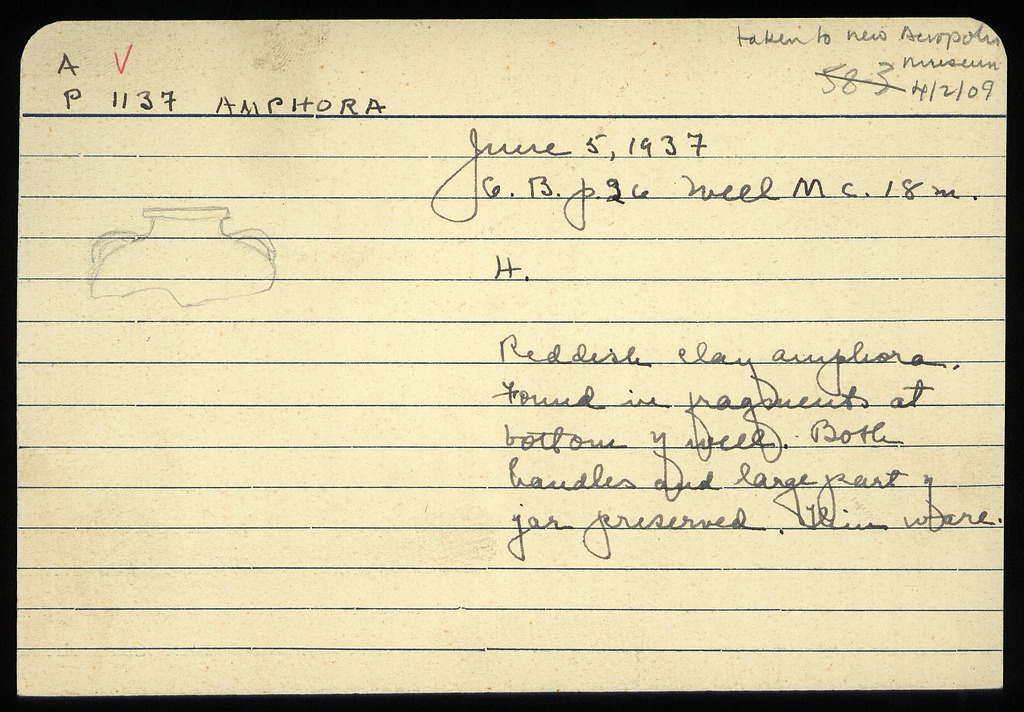 taken to new Acropolis
museum
A V
583 4/2/09
P 1137 AMPHORA
June 5, 1937
G. B. p. 26 Well M c. 18 m.
H.
Reddish clay amphora.
Found in fragments at
bottom of well. Both
handles and large part of
jar preserved. Thin ware.